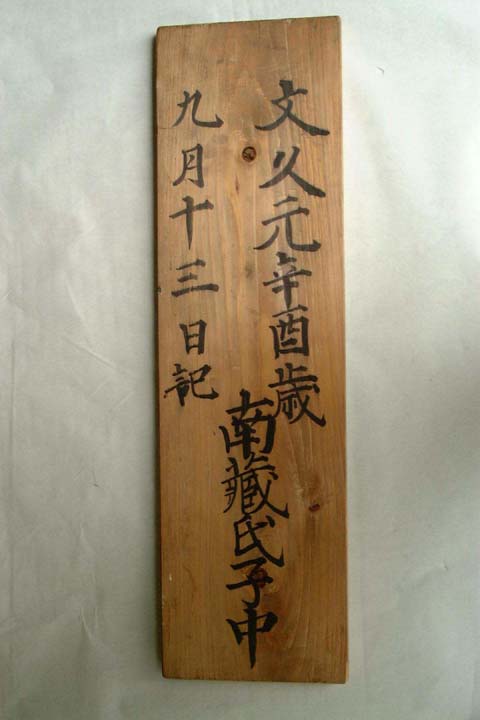 文久元辛酉歳
九月十三日記
南蔵氏子中